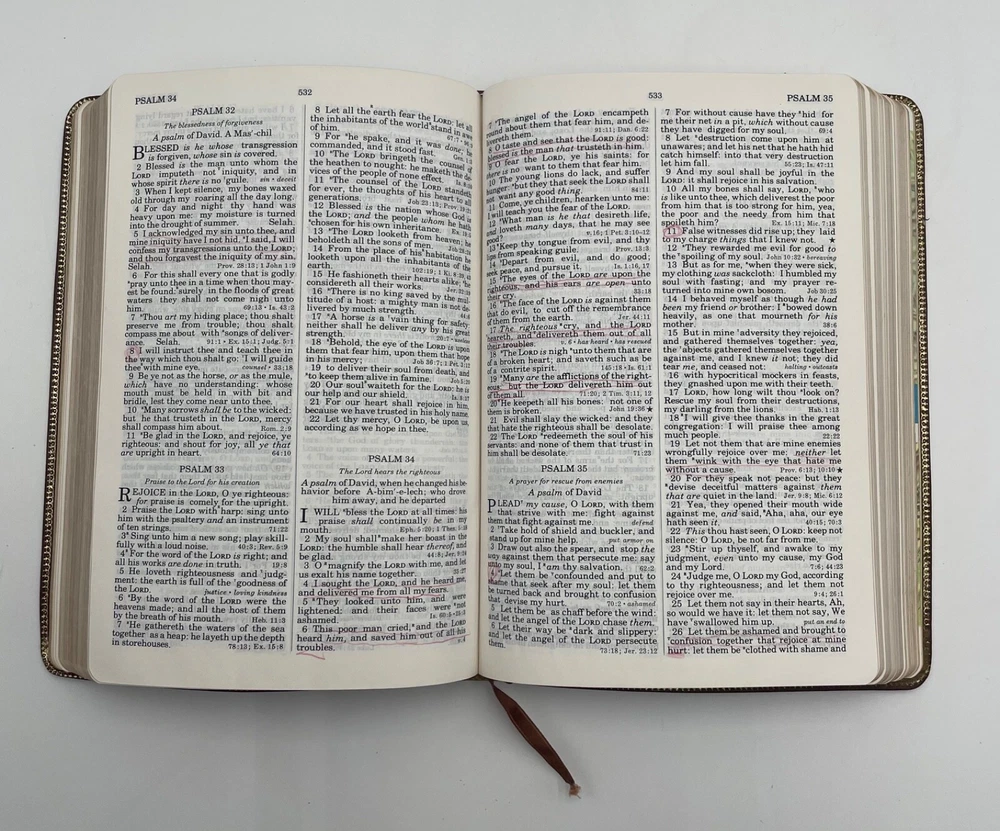 PSALM 34
532
PSALM 32
The blessedness of forgiveness
A psalm of David. A Mas'-chil
BLESSED is he whose transgression
is forgiven, whose sin is covered.
2 Blessed is the man unto whom the
LORD imputeth not iniquity, and in
whose spirit there is no guile. sin • deceit
3 When I kept silence, my bones waxed
old through my roaring all the day long.
4 For day and night thy hand was
heavy upon me: my moisture is turned
into the drought of summer. Selah.
5 I acknowledged my sin unto thee, and
mine iniquity have I not hid. I said, I will
confess my transgressions unto the LORD;
and thou forgavest the iniquity of my sin.
Selah. Prov. 28:13; 1 John 1:9
6 For this shall every one that is godly
pray unto thee in a time when thou may-
est be found: surely in the floods of great
waters they shall not come nigh unto
him. 69:13 • Is. 43:2
7 Thou art my hiding place; thou shalt
preserve me from trouble; thou shalt
compass me about with songs of deliver-
ance. Selah. 91:1 • Ex. 15:1; Judg. 5:1
8 I will instruct thee and teach thee in
the way which thou shalt go: I will guide
thee with mine eye. counsel • 33:18
9 Be ye not as the horse, or as the mule,
which have no understanding: whose
mouth must be held in with bit and
bridle, lest they come near unto thee.
10 Many sorrows shall be to the wicked:
but he that trusteth in the LORD, mercy
shall compass him about. Rom. 2:9
11 Be glad in the LORD, and rejoice, ye
righteous: and shout for joy, all ye that
are upright in heart. 64:10
PSALM 33
Praise to the Lord for his creation
REJOICE in the LORD, O ye righteous:
for praise is comely for the upright.
2 Praise the LORD with harp: sing unto
him with the psaltery and an instrument
of ten strings. 71:22
3 Sing unto him a new song; play skil-
fully with a loud noise. 40:3; Rev. 5:9
4 For the word of the LORD is right; and
all his works are done in truth. 19:8
5 He loveth righteousness and judg-
ment: the earth is full of the goodness of
the LORD. justice • loving kindness
6 By the word of the LORD were the
heavens made; and all the host of them
by the breath of his mouth. Heb. 11:3
7 He gathereth the waters of the sea
together as a heap: he layeth up the depth
in storehouses. 78:13; Ex. 15:8
8 Let all the earth fear the LORD: let all
the inhabitants of the world stand in awe
of him.
9 For he spake, and it was done; he
commanded, and it stood fast.
10 The LORD bringeth the counsel of
the heathen to nought: he maketh the de-
vices of the people of none effect.
11 The counsel of the LORD standeth
for ever, the thoughts of his heart to all
generations. Job 23:13; Prov. 19:21
12 Blessed is the nation whose God is
the LORD; and the people whom he hath
chosen for his own inheritance.
13 The LORD looketh from heaven; he
beholdeth all the sons of men.
14 From the place of his habitation he
looketh upon all the inhabitants of the
earth.
15 He fashioneth their hearts alike; he
considereth all their works.
16 There is no king saved by the mul-
titude of a host: a mighty man is not de-
livered by much strength. 44:6
17 A horse is a vain thing for safety:
neither shall he deliver any by his great
strength.
18 Behold, the eye of the LORD is upon
them that fear him, upon them that hope
in his mercy;
19 to deliver their soul from death, and
to keep them alive in famine. Job 5:20
20 Our soul waiteth for the LORD: he is
our help and our shield.
21 For our heart shall rejoice in him,
because we have trusted in his holy name.
22 Let thy mercy, O LORD, be upon us,
according as we hope in thee.
PSALM 34
The Lord hears the righteous
A psalm of David, when he changed his be-
havior before A-bim'-e-lech; who drove
him away, and he departed
I WILL bless the LORD at all times: his
praise shall continually be in my
mouth. Eph. 5:20; 1 Thes. 5:18
2 My soul shall make her boast in the
LORD: the humble shall hear thereof, and
be glad. 44:8; Jer. 9:24
3 O magnify the LORD with me, and let
us exalt his name together. 35:27
4 I sought the LORD, and he heard me,
and delivered me from all my fears.
5 They looked unto him, and were
lightened: and their faces were not
ashamed.
6 This poor man cried, and the LORD
heard him, and saved him out of all his
troubles.
533
PSALM 35
The angel of the LORD encampeth
round about them that fear him, and de-
livereth them. 91:11; Dan. 6:22
8 O taste and see that the LORD is good:
blessed is the man that trusteth in him.
9 O fear the LORD, ye his saints: for
there is no want to them that fear him.
10 The young lions do lack, and suffer
hunger: but they that seek the LORD shall
not want any good thing. 84:11
11 Come, ye children, hearken unto me:
I will teach you the fear of the LORD.
12 What man is he that desireth life,
and loveth many days, that he may see
good? v. 16; 1 Pet. 3:10-12
13 Keep thy tongue from evil, and thy
lips from speaking guile. Prov. 13:3
14 Depart from evil, and do good;
seek peace, and pursue it. Is. 1:16, 17
15 The eyes of the LORD are upon the
righteous, and his ears are open unto
their cry. 33:18
16 The face of the LORD is against them
that do evil, to cut off the remembrance
of them from the earth. Jer. 44:11
17 The righteous cry, and the LORD
heareth, and delivereth them out of all
their troubles. v. 6 • has heard • has rescued
18 The LORD is nigh unto them that are
of a broken heart; and saveth such as be
of a contrite spirit. 145:18 • Is. 61:1
19 Many are the afflictions of the right-
eous: but the LORD delivereth him out
of them all. 71:20; 2 Tim. 3:11, 12
20 He keepeth all his bones: not one of
them is broken. John 19:36 ★
21 Evil shall slay the wicked: and they
that hate the righteous shall be desolate.
22 The LORD redeemeth the soul of his
servants: and none of them that trust in
him shall be desolate. 71:23
PSALM 35
A prayer for rescue from enemies
A psalm of David
PLEAD my cause, O LORD, with them
that strive with me: fight against
them that fight against me. defend
2 Take hold of shield and buckler, and
stand up for mine help. put armor on
3 Draw out also the spear, and stop the
way against them that persecute me: say
unto my soul, I am thy salvation. 62:2
4 Let them be confounded and put to
shame that seek after my soul: let them
be turned back and brought to confusion
that devise my hurt. 70:2 • ashamed
5 Let them be as chaff before the wind:
and let the angel of the LORD chase them.
6 Let their way be dark and slippery:
and let the angel of the LORD persecute
them. 73:18; Jer. 23:12
7 For without cause have they hid for
me their net in a pit, which without cause
they have digged for my soul. 69:4
8 Let destruction come upon him at
unawares; and let his net that he hath hid
catch himself: into that very destruction
let him fall. 55:23; Is. 47:11
9 And my soul shall be joyful in the
LORD: it shall rejoice in his salvation.
10 All my bones shall say, LORD, who
is like unto thee, which deliverest the poor
from him that is too strong for him, yea,
the poor and the needy from him that
spoileth him? Ex. 15:11; Mic. 7:18
11 False witnesses did rise up; they laid
to my charge things that I knew not. ★
12 They rewarded me evil for good to
the spoiling of my soul. John 10:32 • bereaving
13 But as for me, when they were sick,
my clothing was sackcloth: I humbled my
soul with fasting; and my prayer re-
turned into mine own bosom. Job 30:25
14 I behaved myself as though he had
been my friend or brother: I bowed down
heavily, as one that mourneth for his
mother. 38:6
15 But in mine adversity they rejoiced,
and gathered themselves together: yea,
the abjects gathered themselves together
against me, and I knew it not; they did
tear me, and ceased not: halting • outcasts
16 with hypocritical mockers in feasts,
they gnashed upon me with their teeth.
17 LORD, how long wilt thou look on?
Rescue my soul from their destructions,
my darling from the lions. Hab. 1:13
18 I will give thee thanks in the great
congregation: I will praise thee among
much people. 22:22
19 Let not them that are mine enemies
wrongfully rejoice over me: neither let
them wink with the eye that hate me
without a cause. Prov. 6:13; 10:10 ★
20 For they speak not peace: but they
devise deceitful matters against them
that are quiet in the land. Jer. 9:8; Mic. 6:12
21 Yea, they opened their mouth wide
against me, and said, Aha, aha, our eye
hath seen it. 40:15; 70:3
22 This thou hast seen, O LORD: keep not
silence: O LORD, be not far from me.
23 Stir up thyself, and awake to my
judgment, even unto my cause, my God
and my Lord. 7:6; 44:23
24 Judge me, O LORD my God, according
to thy righteousness; and let them not
rejoice over me. 9:4; 26:1
25 Let them not say in their hearts, Ah,
so would we have it: let them not say, We
have swallowed him up. put an end to
26 Let them be ashamed and brought to
confusion together that rejoice at mine
hurt: let them be clothed with shame and